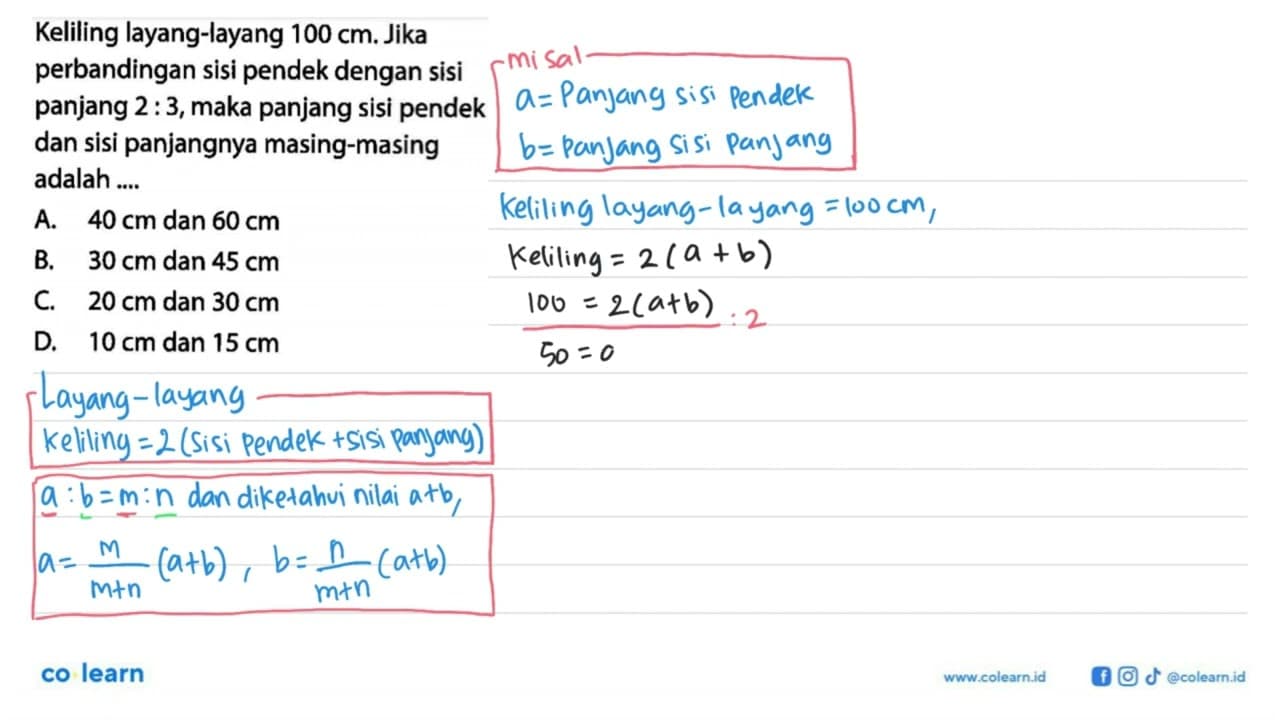 Keliling layang-layang 100 cm. Jika
perbandingan sisi pendek dengan sisi
panjang 2 : 3, maka panjang sisi pendek
dan sisi panjangnya masing-masing
adalah ....
A. 40 cm dan 60 cm
B. 30 cm dan 45 cm
C. 20 cm dan 30 cm
D. 10 cm dan 15 cm
Layang-layang
Keliling = 2 (Sisi Pendek + Sisi Panjang)
a : b = m : n dan diketahui nilai a+b,
a = m/(m+n) (a+b), b = n/(m+n) (a+b)
misal
a = Panjang sisi Pendek
b = Panjang Sisi Panjang
Keliling layang-layang = 100 cm,
Keliling = 2 (a + b)
100 = 2 (a+b) : 2
50 = 0
co learn
www.colearn.id
@colearn.id